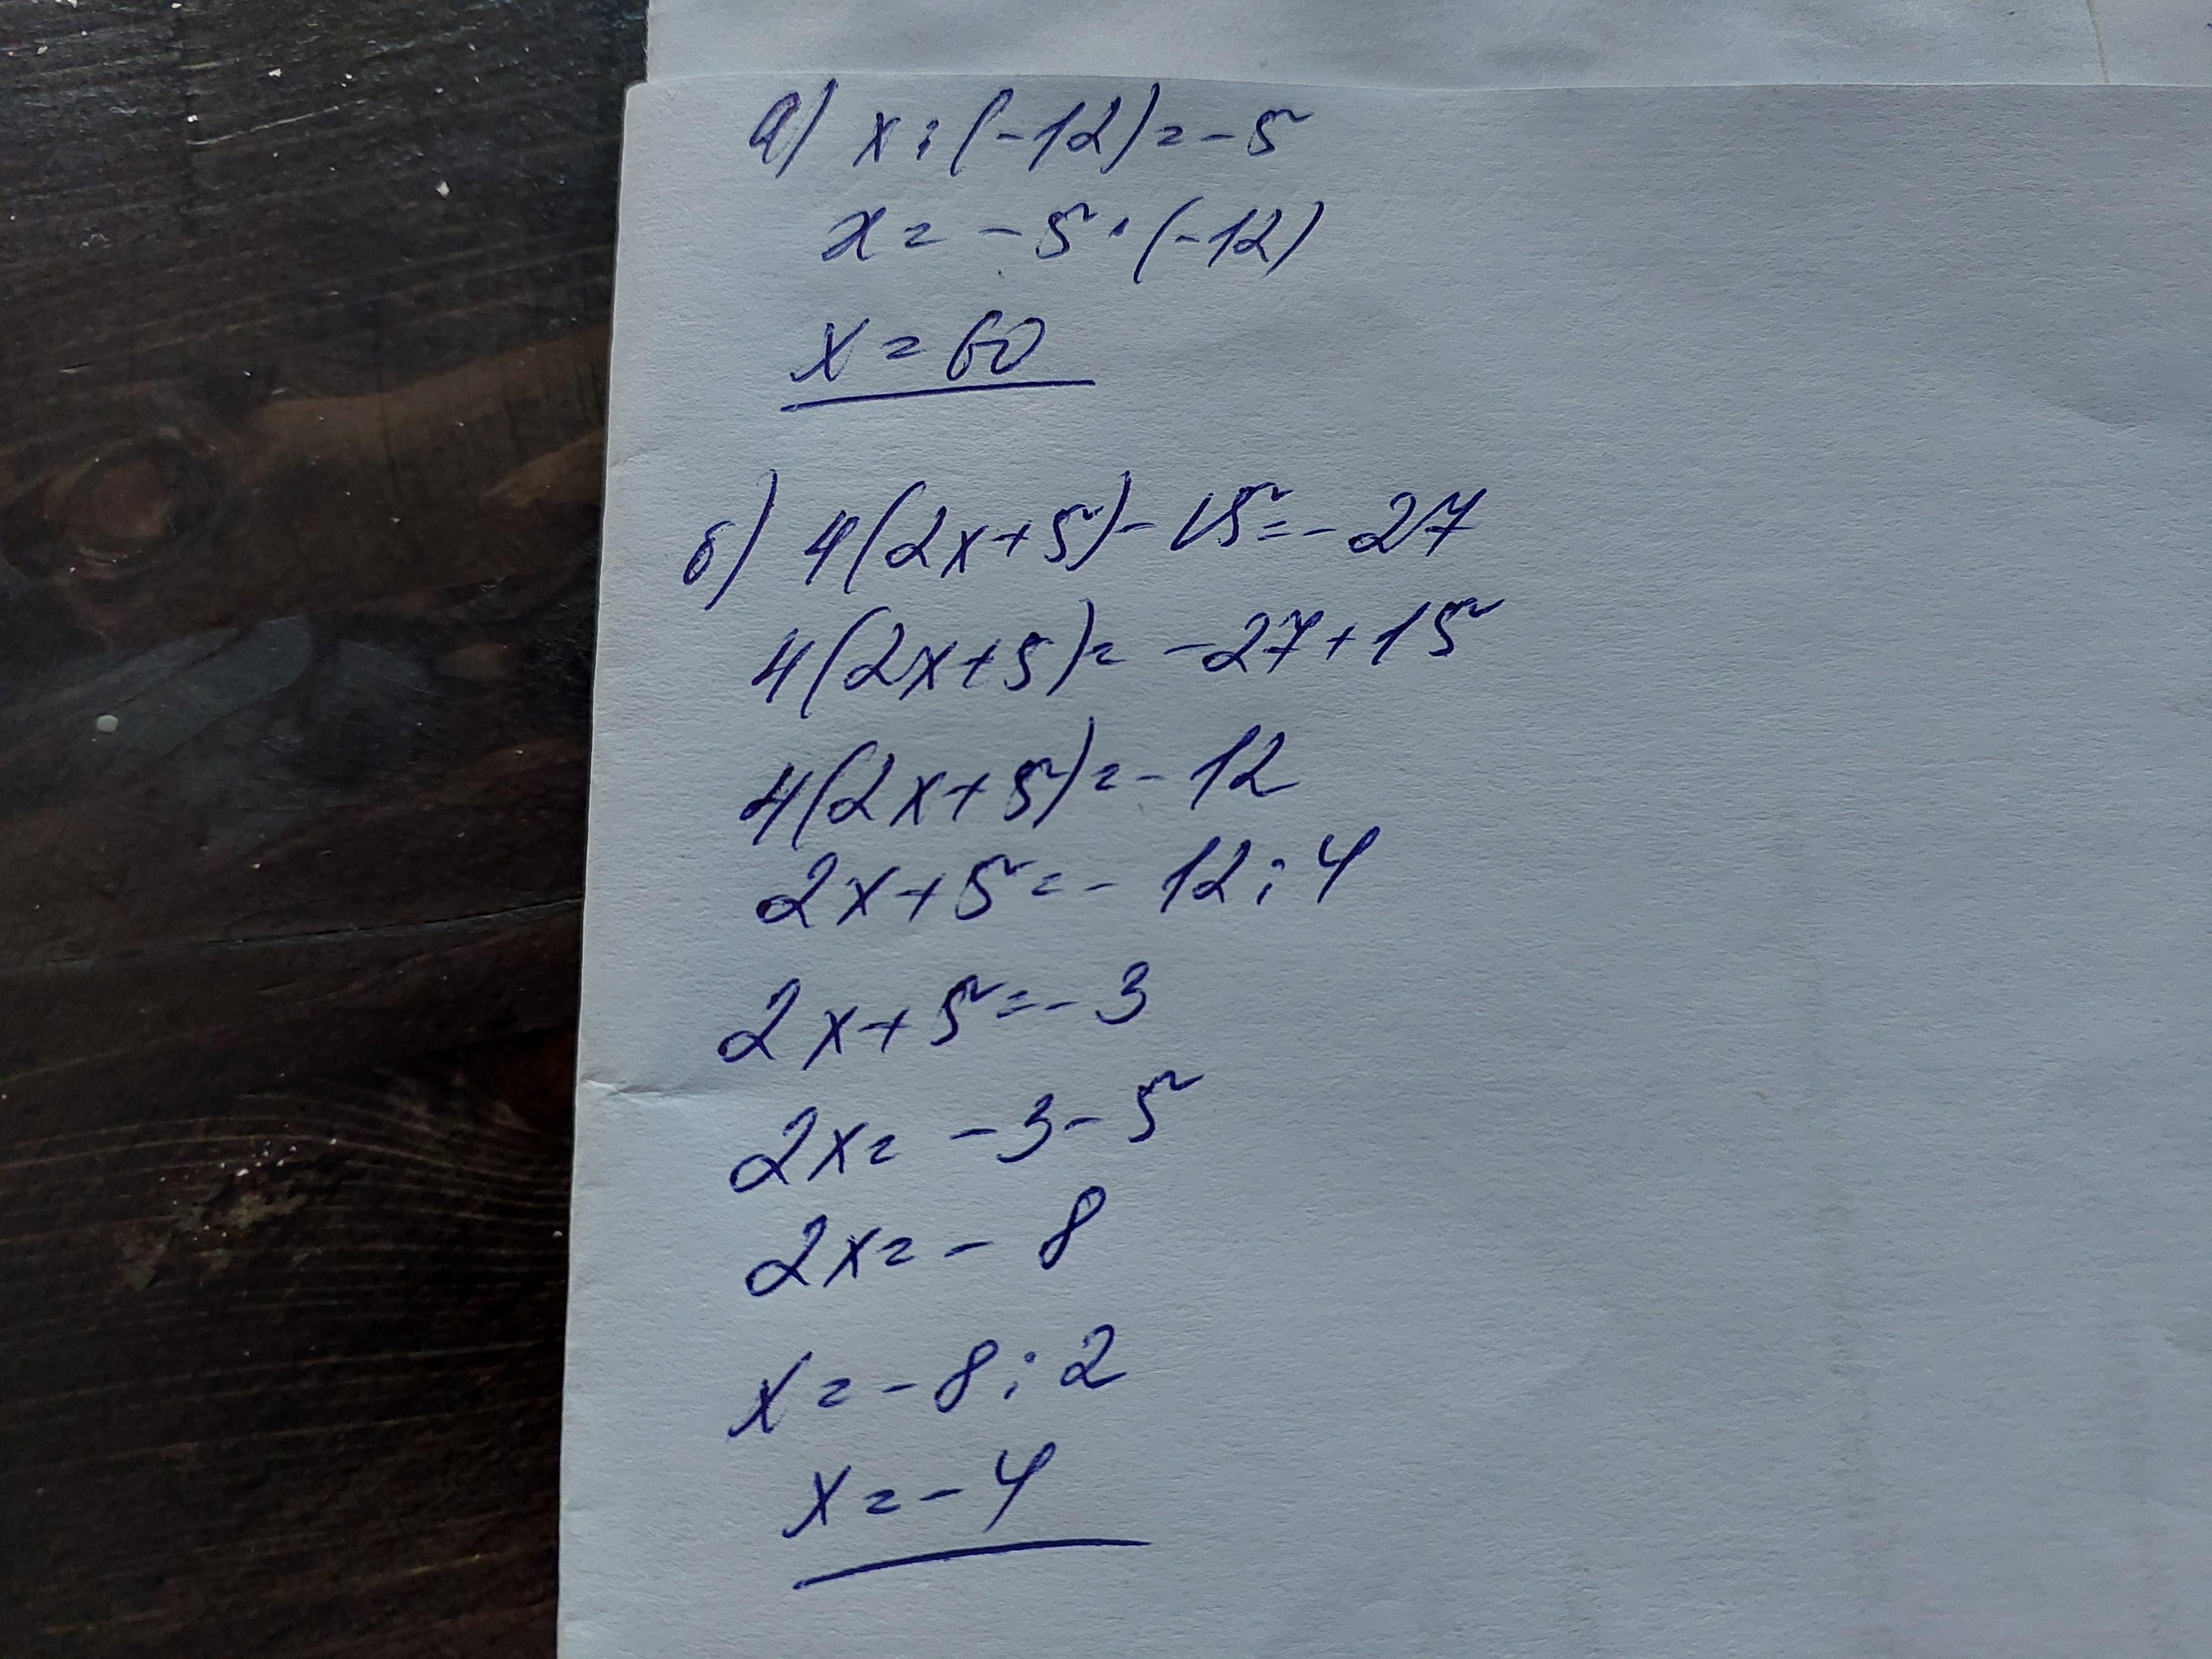 а) x : (-12) = -5
x = -5 · (-12)
x = 60
б) 4(2x+5) - 15 = -27
4(2x+5) = -27+15
4(2x+5) = -12
2x+5 = -12 : 4
2x+5 = -3
2x = -3-5
2x = -8
x = -8 : 2
x = -4